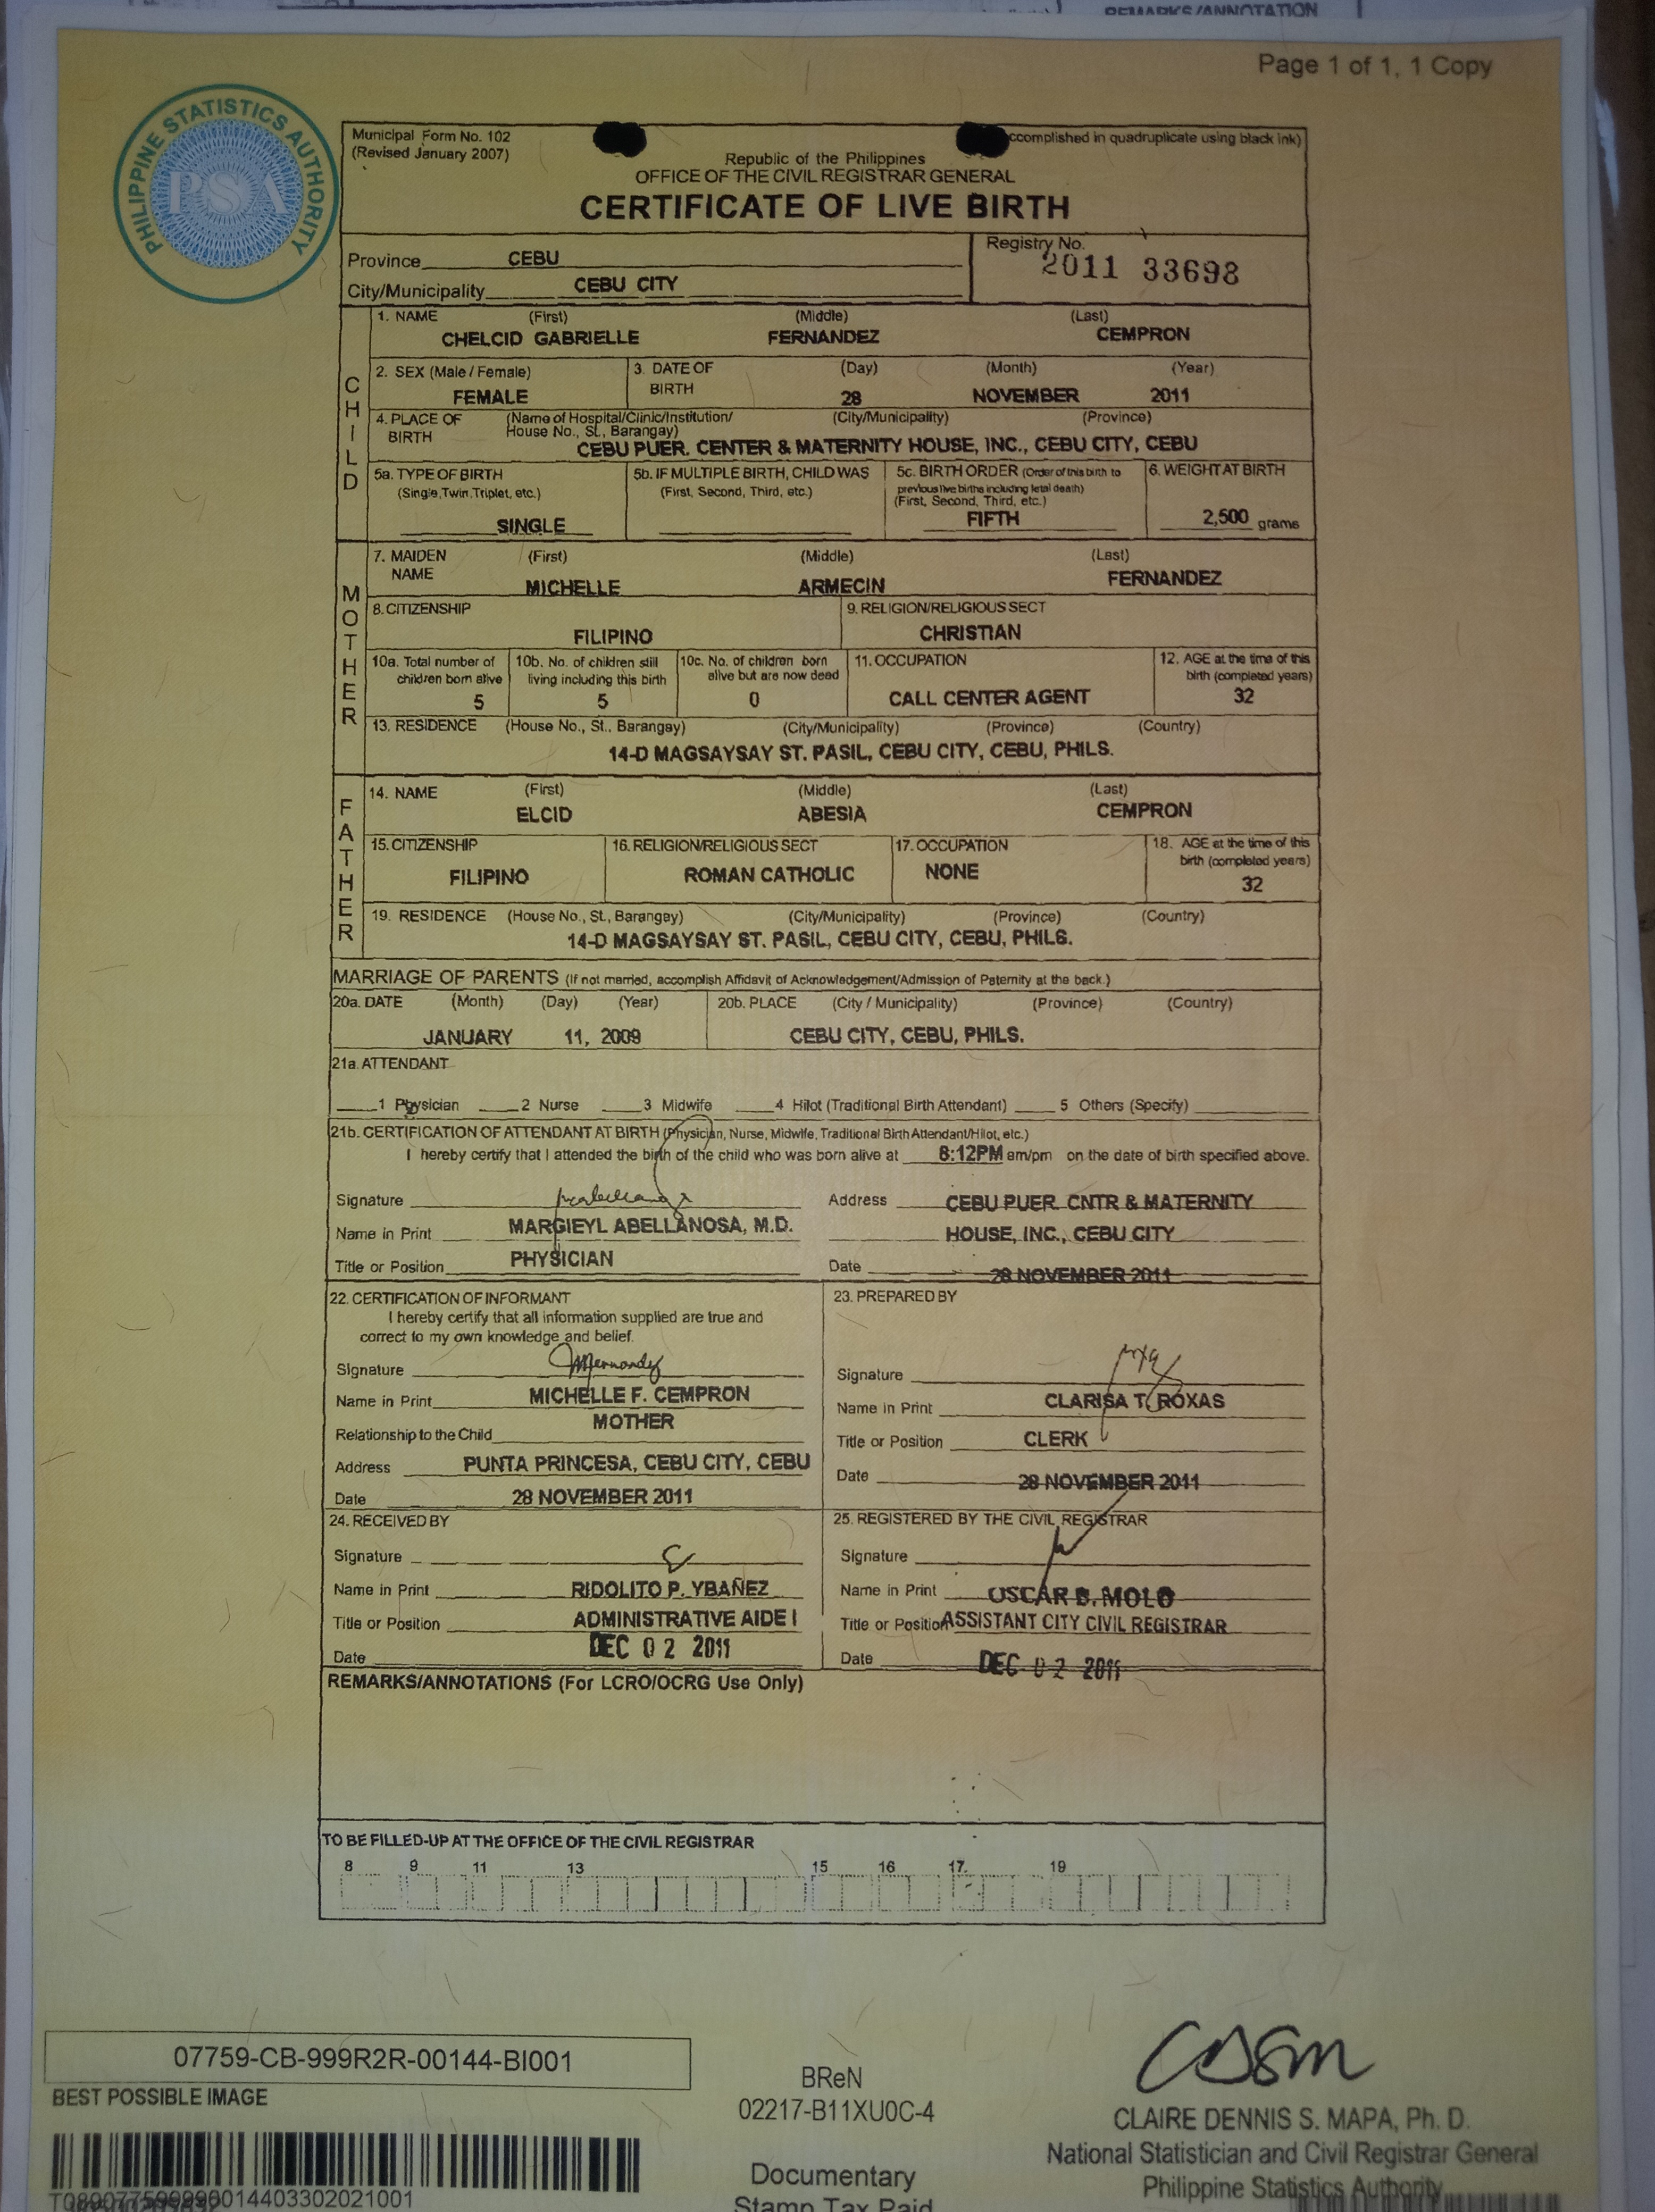 REMARKS/ANNOTATION
Page 1 of 1, 1 Copy
PHILIPPINE STATISTICS AUTHORITY
PSA
Municipal Form No. 102
(Revised January 2007)
ccomplished in quadruplicate using black ink)
Republic of the Philippines
OFFICE OF THE CIVIL REGISTRAR GENERAL
CERTIFICATE OF LIVE BIRTH
Province CEBU
City/Municipality CEBU CITY
Registry No.
2011 33698
CHILD
1. NAME (First) (Middle) (Last)
CHELCID GABRIELLE FERNANDEZ CEMPRON
2. SEX (Male / Female) 3. DATE OF BIRTH (Day) (Month) (Year)
FEMALE 28 NOVEMBER 2011
4. PLACE OF BIRTH (Name of Hospital/Clinic/Institution/ House No., St., Barangay) (City/Municipality) (Province)
CEBU PUER. CENTER & MATERNITY HOUSE, INC., CEBU CITY, CEBU
5a. TYPE OF BIRTH (Single, Twin, Triplet, etc.)
SINGLE
5b. IF MULTIPLE BIRTH, CHILD WAS (First, Second, Third, etc.)
5c. BIRTH ORDER (Order of this birth to previous live births including fetal death) (First, Second, Third, etc.)
FIFTH
6. WEIGHT AT BIRTH
2,500 grams
MOTHER
7. MAIDEN NAME (First) (Middle) (Last)
MICHELLE ARMECIN FERNANDEZ
8. CITIZENSHIP 9. RELIGION/RELIGIOUS SECT
FILIPINO CHRISTIAN
10a. Total number of children born alive
5
10b. No. of children still living including this birth
5
10c. No. of children born alive but are now dead
0
11. OCCUPATION
CALL CENTER AGENT
12. AGE at the time of this birth (completed years)
32
13. RESIDENCE (House No., St., Barangay) (City/Municipality) (Province) (Country)
14-D MAGSAYSAY ST. PASIL, CEBU CITY, CEBU, PHILS.
FATHER
14. NAME (First) (Middle) (Last)
ELCID ABESIA CEMPRON
15. CITIZENSHIP 16. RELIGION/RELIGIOUS SECT 17. OCCUPATION 18. AGE at the time of this birth (completed years)
FILIPINO ROMAN CATHOLIC NONE 32
19. RESIDENCE (House No., St., Barangay) (City/Municipality) (Province) (Country)
14-D MAGSAYSAY ST. PASIL, CEBU CITY, CEBU, PHILS.
MARRIAGE OF PARENTS (If not married, accomplish Affidavit of Acknowledgement/Admission of Paternity at the back.)
20a. DATE (Month) (Day) (Year) 20b. PLACE (City / Municipality) (Province) (Country)
JANUARY 11, 2009 CEBU CITY, CEBU, PHILS.
21a. ATTENDANT
1 Physician 2 Nurse 3 Midwife 4 Hilot (Traditional Birth Attendant) 5 Others (Specify)
21b. CERTIFICATION OF ATTENDANT AT BIRTH (Physician, Nurse, Midwife, Traditional Birth Attendant/Hilot, etc.)
I hereby certify that I attended the birth of the child who was born alive at 8:12PM am/pm on the date of birth specified above.
Signature Address CEBU PUER. CNTR & MATERNITY
Name in Print MARGIEYL ABELLANOSA, M.D. HOUSE, INC., CEBU CITY
Title or Position PHYSICIAN Date 28 NOVEMBER 2011
22. CERTIFICATION OF INFORMANT
I hereby certify that all information supplied are true and
correct to my own knowledge and belief.
Signature
Name in Print MICHELLE F. CEMPRON
Relationship to the Child MOTHER
Address PUNTA PRINCESA, CEBU CITY, CEBU
Date 28 NOVEMBER 2011
23. PREPARED BY
Signature
Name in Print CLARISA T. ROXAS
Title or Position CLERK
Date 28 NOVEMBER 2011
24. RECEIVED BY
Signature
Name in Print RIDOLITO P. YBAÑEZ
Title or Position ADMINISTRATIVE AIDE I
Date DEC 02 2011
25. REGISTERED BY THE CIVIL REGISTRAR
Signature
Name in Print OSCAR B. MOLO
Title or Position ASSISTANT CITY CIVIL REGISTRAR
Date DEC 02 2011
REMARKS/ANNOTATIONS (For LCRO/OCRG Use Only)
TO BE FILLED-UP AT THE OFFICE OF THE CIVIL REGISTRAR
8 9 11 13 15 16 17. 19
07759-CB-999R2R-00144-BI001
BEST POSSIBLE IMAGE
BReN
02217-B11XU0C-4
Documentary
Stamp Tax Paid
CLAIRE DENNIS S. MAPA, Ph. D.
National Statistician and Civil Registrar General
Philippine Statistics Authority